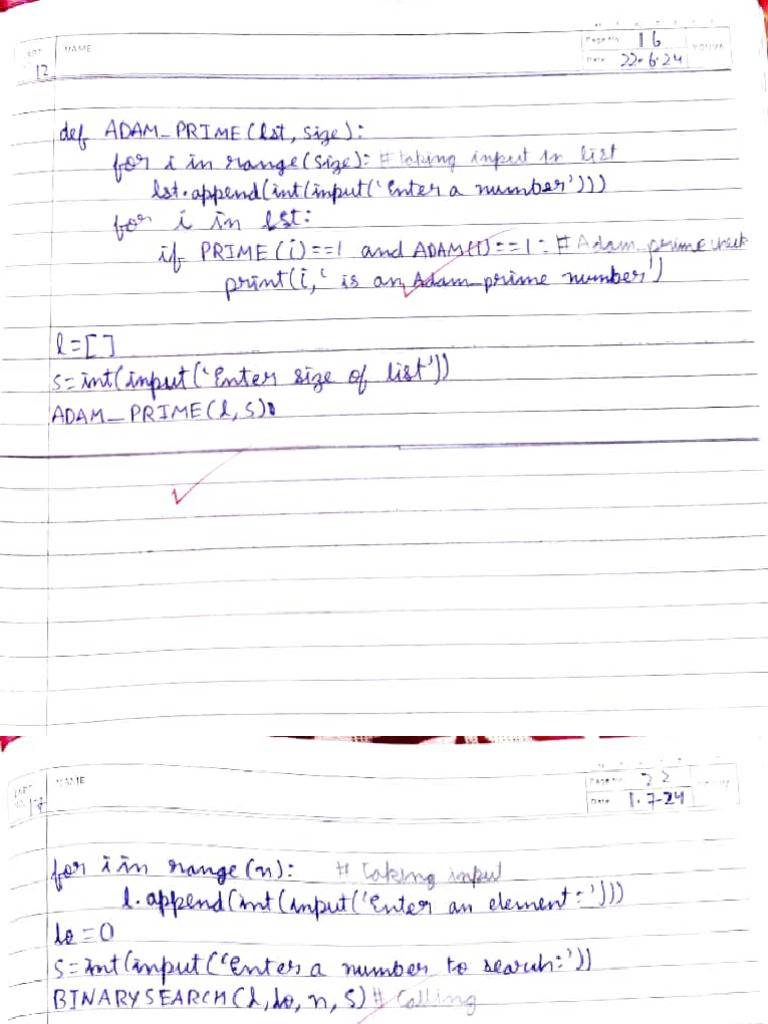 NAME
Page No. 16
12
Date 22.6.24
YOUVA
def ADAM_PRIME(lst, size):
for i in range(size): # taking input in list
lst.append(int(input('Enter a number')))
for i in lst:
if PRIME(i)==1 and ADAM(i)==1: # Adam_prime check
print(i,' is an Adam_prime number')
l=[]
s=int(input('Enter size of list'))
ADAM_PRIME(l, s)
NAME
Page No. 22
17
Date 1.7.24
for i in range(n): # Taking input
l.append(int(input('Enter an element:')))
lo=0
s=int(input('Enter a number to search:'))
BINARYSEARCH(l, lo, n, s) # Calling